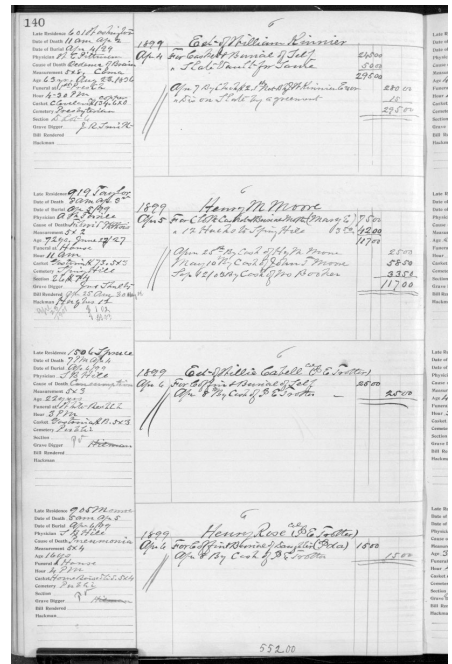 140
Late Residence 601 Washington
Date of Death 11 am Apr 2
Date of Burial Apr 4/99
Physician
Cause of Death Oedema of Brain
Measurement 5x6 Coma
Age 63 yrs Aug 22 1836
Funeral at 1st Presby
Hour 4-30 PM
Casket
Cemetery Presbyterian
Section
Grave Digger J R Smith
Bill Rendered
Hackman
6
1899 Est of William Kinnier
Apr 4 For Casket & Burial of Self 245 00
" Slate Vault for Same 50 00
295 00
280 00
" Dis on Slate by agreement 15
295 00
Late Residence 919 Taylor
Date of Death 8 am Apr 3rd
Date of Burial Apr 5/99
Physician
Cause of Death
Measurement 5x2
Age 72 yrs June 22/27
Funeral at House
Hour 11 am
Casket
Cemetery Spring Hill
Section
Grave Digger Jno Smith
Bill Rendered
Hackman Hughes 12
6
1899 Henry M Moore
Apr 5 For Casket & Burial Mother (Mary E) 75 00
" 12 Hacks to Spring Hill 3 50 42 00
117 00
Apr 25th By Cash of Hy M Moore 25 00
May 10 By Cash of Jean S Moore 58 50
By Cash of Wo Booker 33 50
117 00
Late Residence 1506 Spruce
Date of Death 7 PM Apr 4
Date of Burial Apr 6/99
Physician J B Hill
Cause of Death Consumption
Measurement 5x3
Age 22 yrs
Funeral at
Hour 3 PM
Casket 5x3
Cemetery Public
Section
Grave Digger
Bill Rendered
Hackman
6
1899 Est of Willie Cabell Col (P E Trotter)
Apr 6 For Coffin & Burial of Self 25 00
Apr 8 By Cash of P E Trotter - 25 00
Late Residence 905 Monroe
Date of Death 8 am Apr 5
Date of Burial Apr 6/99
Physician J B Hill
Cause of Death Pneumonia
Measurement 5x4
Age 16 yo
Funeral at House
Hour 4 PM
Casket 5x4
Cemetery Public
Section
Grave Digger
Bill Rendered
Hackman
6
1899 Henry Rose Col (P E Trotter)
Apr 6 For Coffin & Burial of Daughter 15 00
Apr 8 By Cash of P E Trotter 15 00
552.00